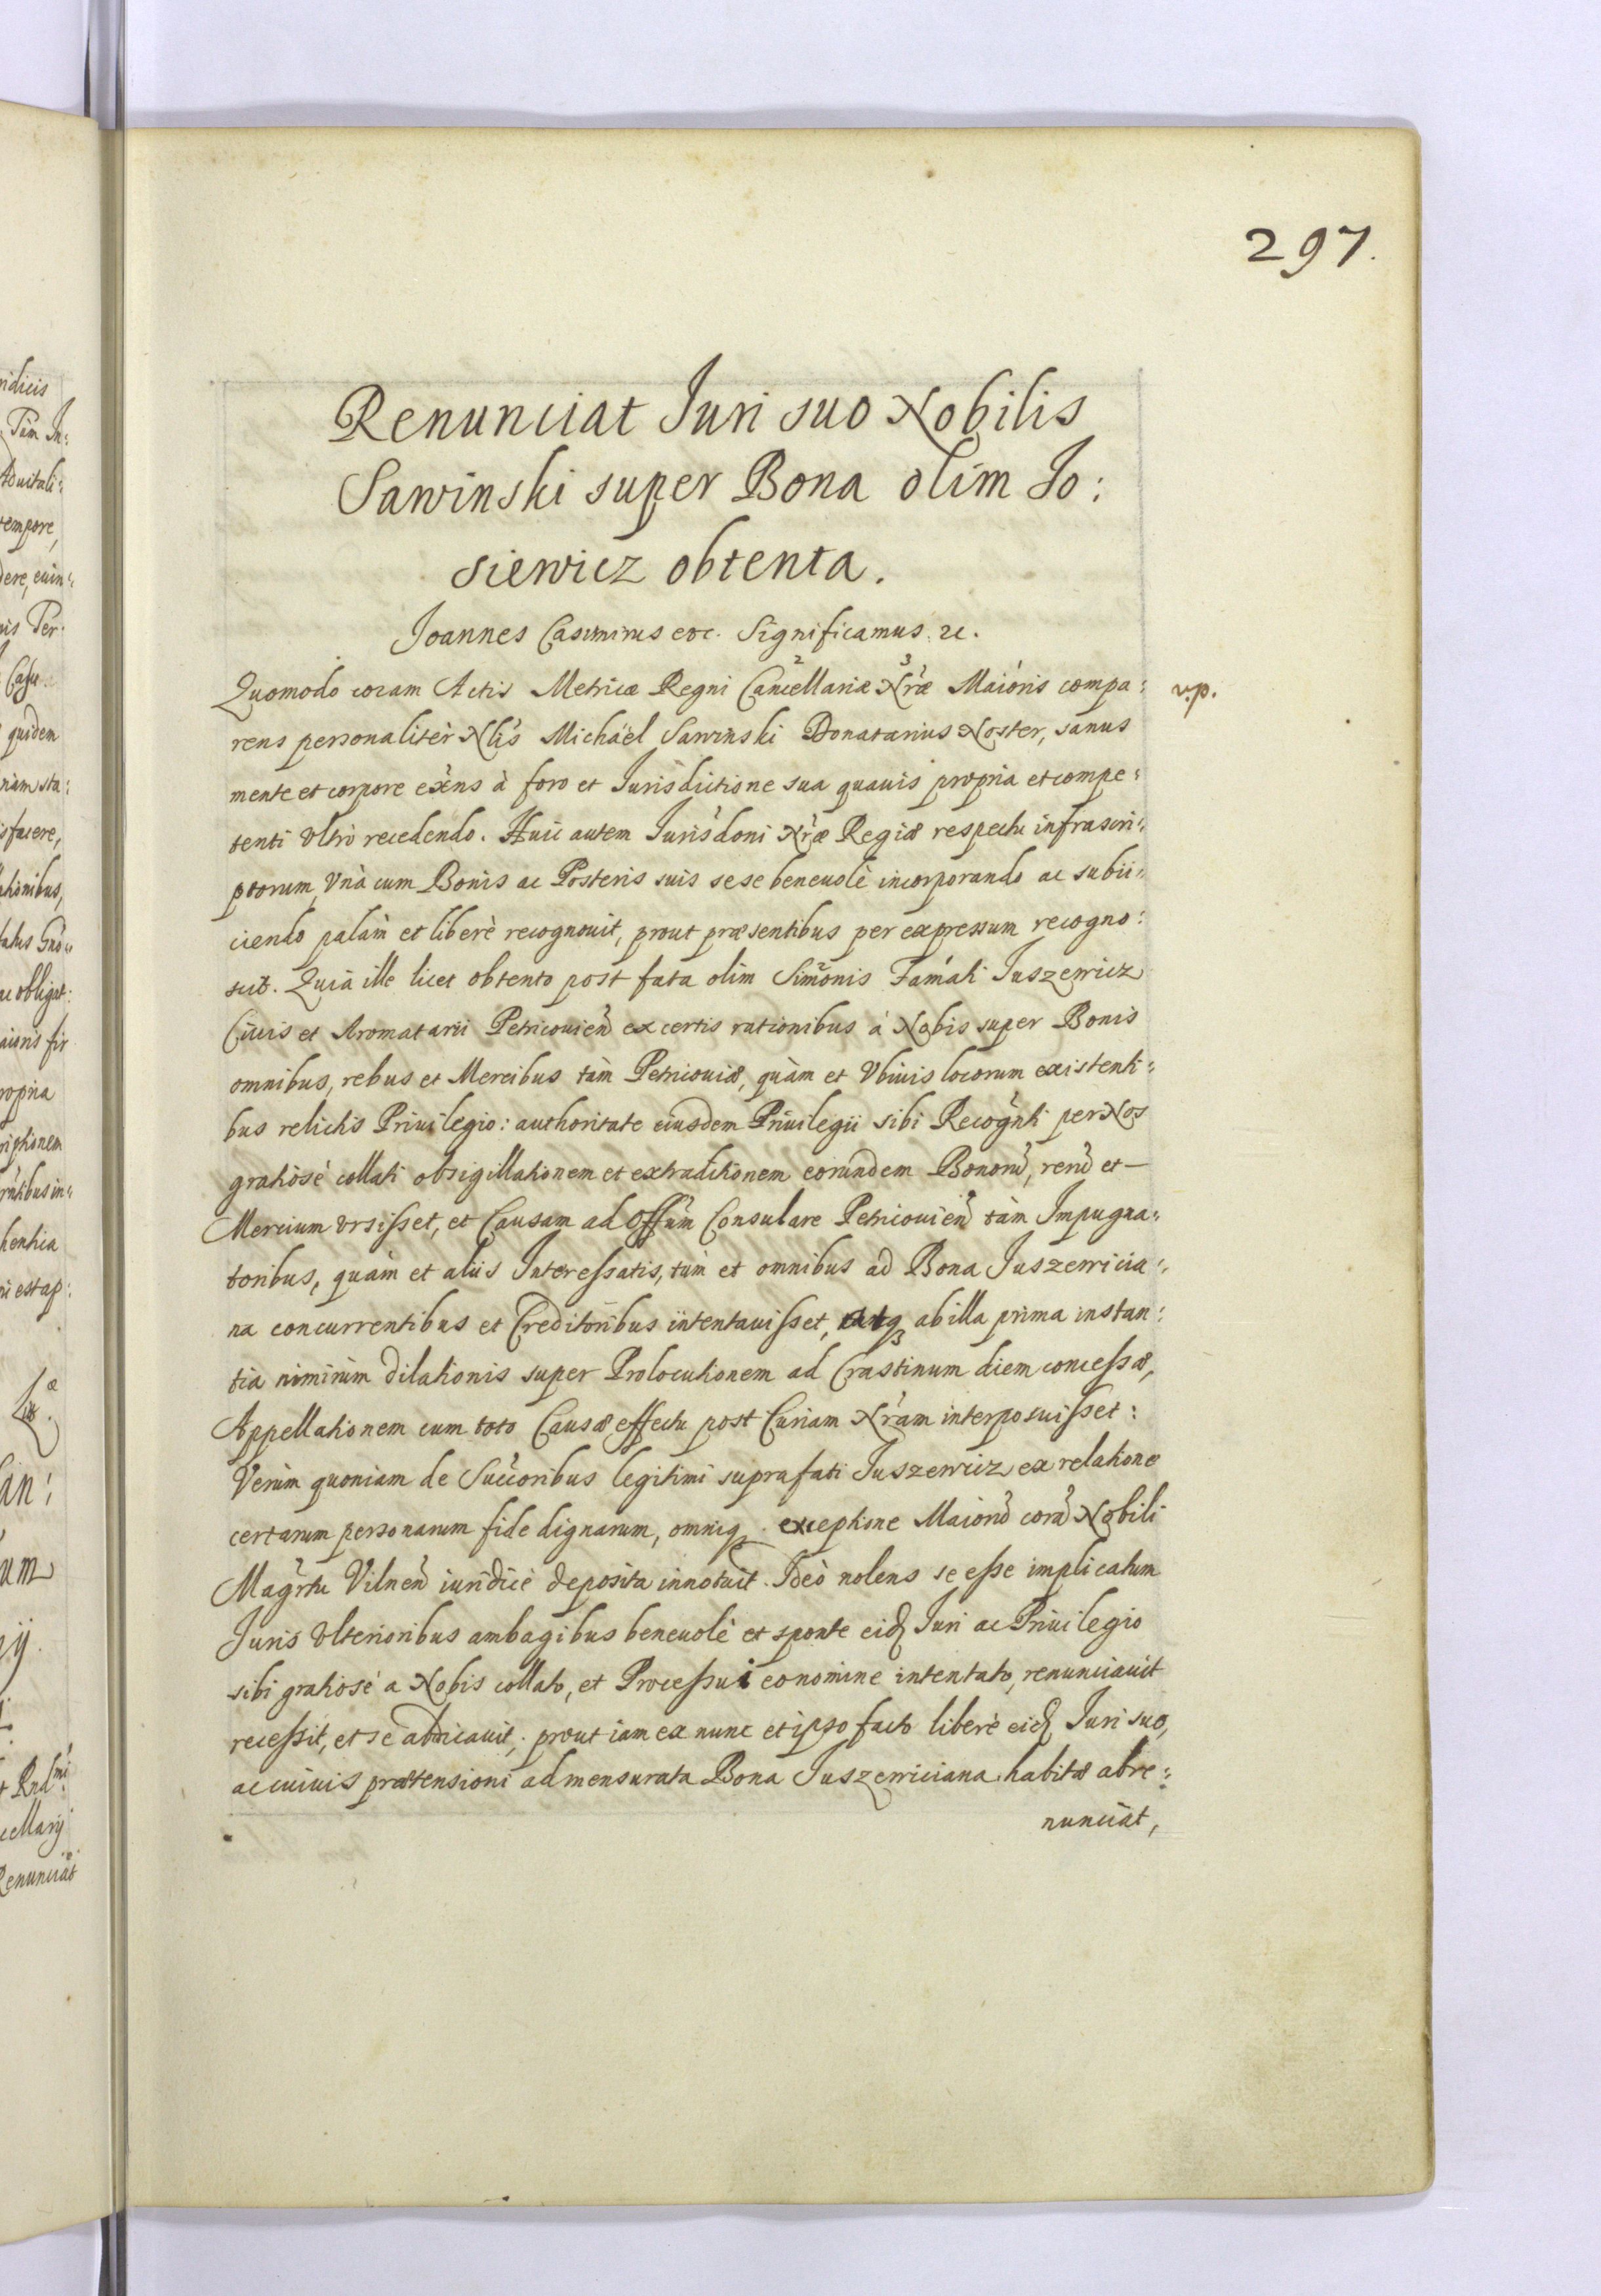 297.
Renunciat Juri suo Nobilis
Sawinski super Bona olim Jo:
siewicz obtenta.
Joannes Casimirus etc. Significamus etc.
Quomodo coram Actis Metricæ Regni Cancellariæ Nr̃æ Maioris compa:
rens personalitèr Nlis Michäel Sawinski Donatarius Noster, sanus
mente et corpore exẽns à foro et Jurisdictione sua quauis propria et compe:
tenti Vltrò recedendo. Huic autem Jurisdoni Nræ Regiæ respectu infrascri:
ptorum, Vnà cum Bonis ac Posteris suis sese beneuolè incorporando ac subii:
ciendo palàm et liberè recognouit, prout præsentibus per expressum recogno:
scit. Quia ille licet obtento post fata olim Simonis Famati Juszewicz
Ciuis et Aromatarii Petricouien̄ ex certis rationibus á Nobis super Bonis
omnibus, rebus et Mercibus tàm Petricouiæ, quàm et Vbiuis locorum existenti:
bus relictis Priuilegio: authoritate eiusdem Priuilegii sibi Recognti per Nos
gratiòsè collati obsigillationem et extraditionem eorundem Bonorū, rerū et —
Mercium vrsisset, et Causam ad Offūm Consulare Petricouien̄ tàm Impugna:
toribus, quàm et aliis Interessatis, tùm et omnibus ad Bona Juszewicia:
na concurrentibus et Creditoribus intentauisset, atq3 ab illa prima instan:
tia nimirùm dilationis super Prolocutionem ad Crastinum diem concessæ,
Appellationem cum toto Causæ effectu post Curiam Nr̃am interposuisset:
Verùm quoniam de Succoribus legitimi suprafati Juszewicz ex relatione
certarum personarum fide dignarum, omniq3 exceptione Maiorū corā Nobili
Magrtu Vilnen̄ iuridicè deposita innotuit. Ideò nolens se esse implicatum
Juris Vlterioribus ambagibus beneuolè et sponte eid̃ Juri ac Priuilegio
sibi gratiosè a Nobis collato, et Processui eo nomine intentato, renunciauit
recessit, et sè abdicauit, prout iam ex nunc et ipso facto liberè eid̃ Juri suo,
ac cuiuis prætensioni ad mensurata Bona Juszewiciana habitæ abre:
nunciat,
v.p.